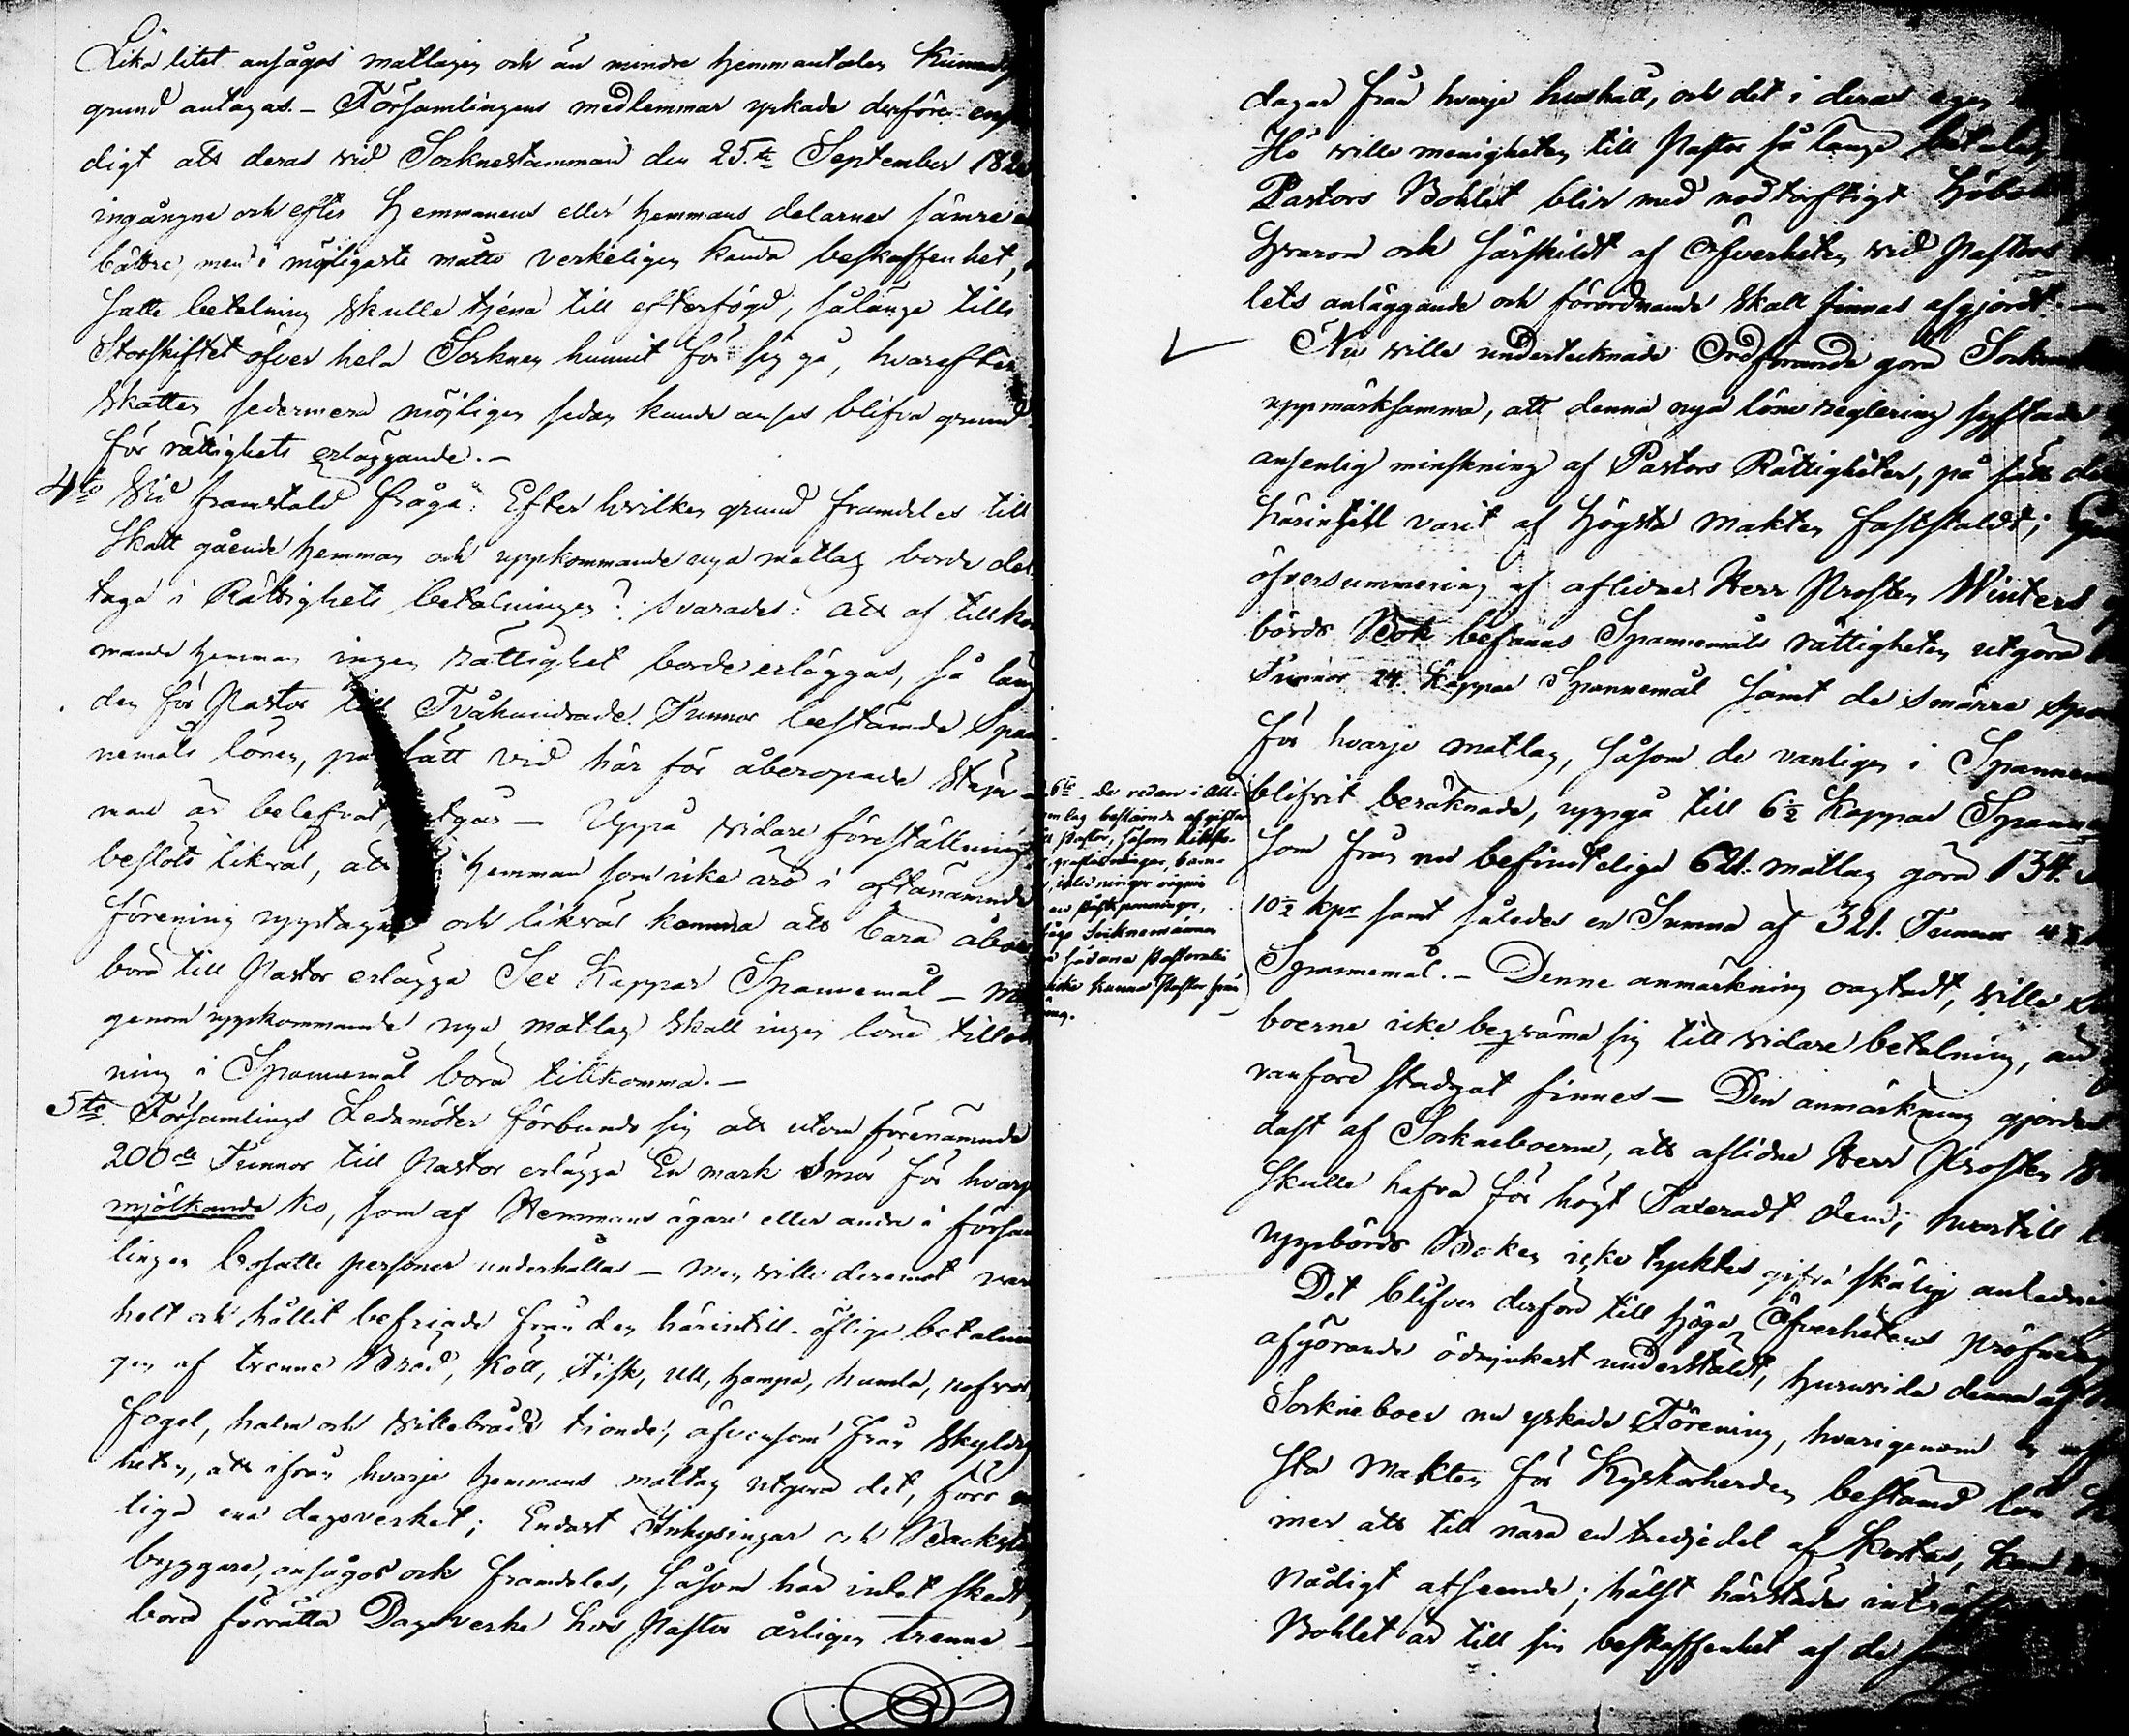 Lika litet ansågos matlagen och än mindre hemmantalen kunna
grund antagas. – Församlingens medlemmar yrkade derföre
digt att deras vid Socknestämman den 25.te September 182
ingångne och efter Hemmanens eller hemmans delarnes sämre
bättre, men i möjligaste måtto verkeligen kända beskaffenhet,
satte betalning skulle tjena till efterföljd, sålänge tills
Storskiftet öfver hela Socknen hunnit för sig gå, hvarefter
skatten sedermera möjligen sedan kunde anses blifva grund
för rättighets erläggande. –
4to Vid framstäld fråga: Efter hvilken grund framdeles till
Skatt gående hemman och uppkommande nya matlag borde del
taga i Rättighets betalningen? svarades: att af tillkom
mande hemman ingen rättighet borde erläggas, så läng
den för Pastor till Tvåhundrade Tunnor bestämde Span
nemåls lönen, på sätt vid här för åberopade
man är belefvat, utgår – Uppå vidare föreställning
beslöts likväl, att hemman som icke äro i oftanämnde
förening upptagne och likväl komma att bära åbo
bord till Pastor erlägga Sex Kappar Spannemål –
genom uppkommande nya matlag skall ingen löne tillök
ning i Spannemål böra tillkomma. –
5te Församlings Ledamöter förbundo sig att utom förenämnde
200de Tunnor till Pastor erlägga En mark Smör för hvarje
mjölkande ko, som af Hemmans ägare eller andre i försam
lingen bosatte personer underhållas – Men ville deremot vara
helt och hållit befriade från den härintill öflige betalnin
gen af trenne Bröd, Kött, Fisk, Ull, hampa, humla, rofvor,
fogel, halm och Villebråds tionde, äfvensom från skyldig
heten, att ifrån hvarje hemmans matlag utgöra det, förr
liga ena dagsverket; Endast Inhysingar och Backstu
byggare, ansågos och framdeles, såsom här intet skedt,
bord förrätta Dagsverke hos Pastor årligen trenne –
dagar från hvarje hushåll, och det i deras egen
Hö ville menigheten till Pastor så länge betala,
Pastors Bohlet blir med nödtorftigt Höbol
hvarom och särskildt af Öfverheten vid Pastors
lets anläggande och förordnande skall finnas afgjordt. –
Nu ville undertecknade Ordförande göra Sockne
uppmärksamma, att denna nya löne reglering syftade
ansenlig minskning af Pastors Rättigheter, på sätt de
härintill varit af Högsta Makten fastställt;
öfversummering af aflidne Herr Prosten Winters
börds Bok befanns Spannemåls rättigheten utgöra
Tunnor 24 Kappar Spannemål samt de smärre
för hvarje matlag, såsom de vanligen i Spannem
blifvit beräknade, uppgå till 6½ Kappar Spannem
som från nu befinteliga 621. matlag göra 134.
10½ kpr samt således en Summa af 321. Tunnor
Spannemål. – Denne anmärkning oagtadt, ville
boerne icke beqväma sig till vidare betalning, än
vanföre stadgat finnes – Den anmärkning gjordes
dast af Sockneboerne, att aflidne Herr Prosten
skulle hafva för högt Taxeradt dem; hvartill
uppbörds Boken icke tycktes gifva skälig anledning
Det blifver derföre till höga Öfverhetens pröfning
afgörande ödmjukast understäldt, huruvida denna af
Sockneboer nu yrkade Förening, hvarigenom
sta Makten för Kyrkoherden bestämd lön
mer att till nära en tredjedel af kortas, kan
Nådigt afseende; hälst härstädes inträf
Bohlet är till sin beskaffenhet af de
6te De redan i All
lag bestämde afgifter
Pastor, såsom
grafläsningar, barn
påskpenningar,
Socknemännen
sådana Pastoralia
icke kunna Pastor från